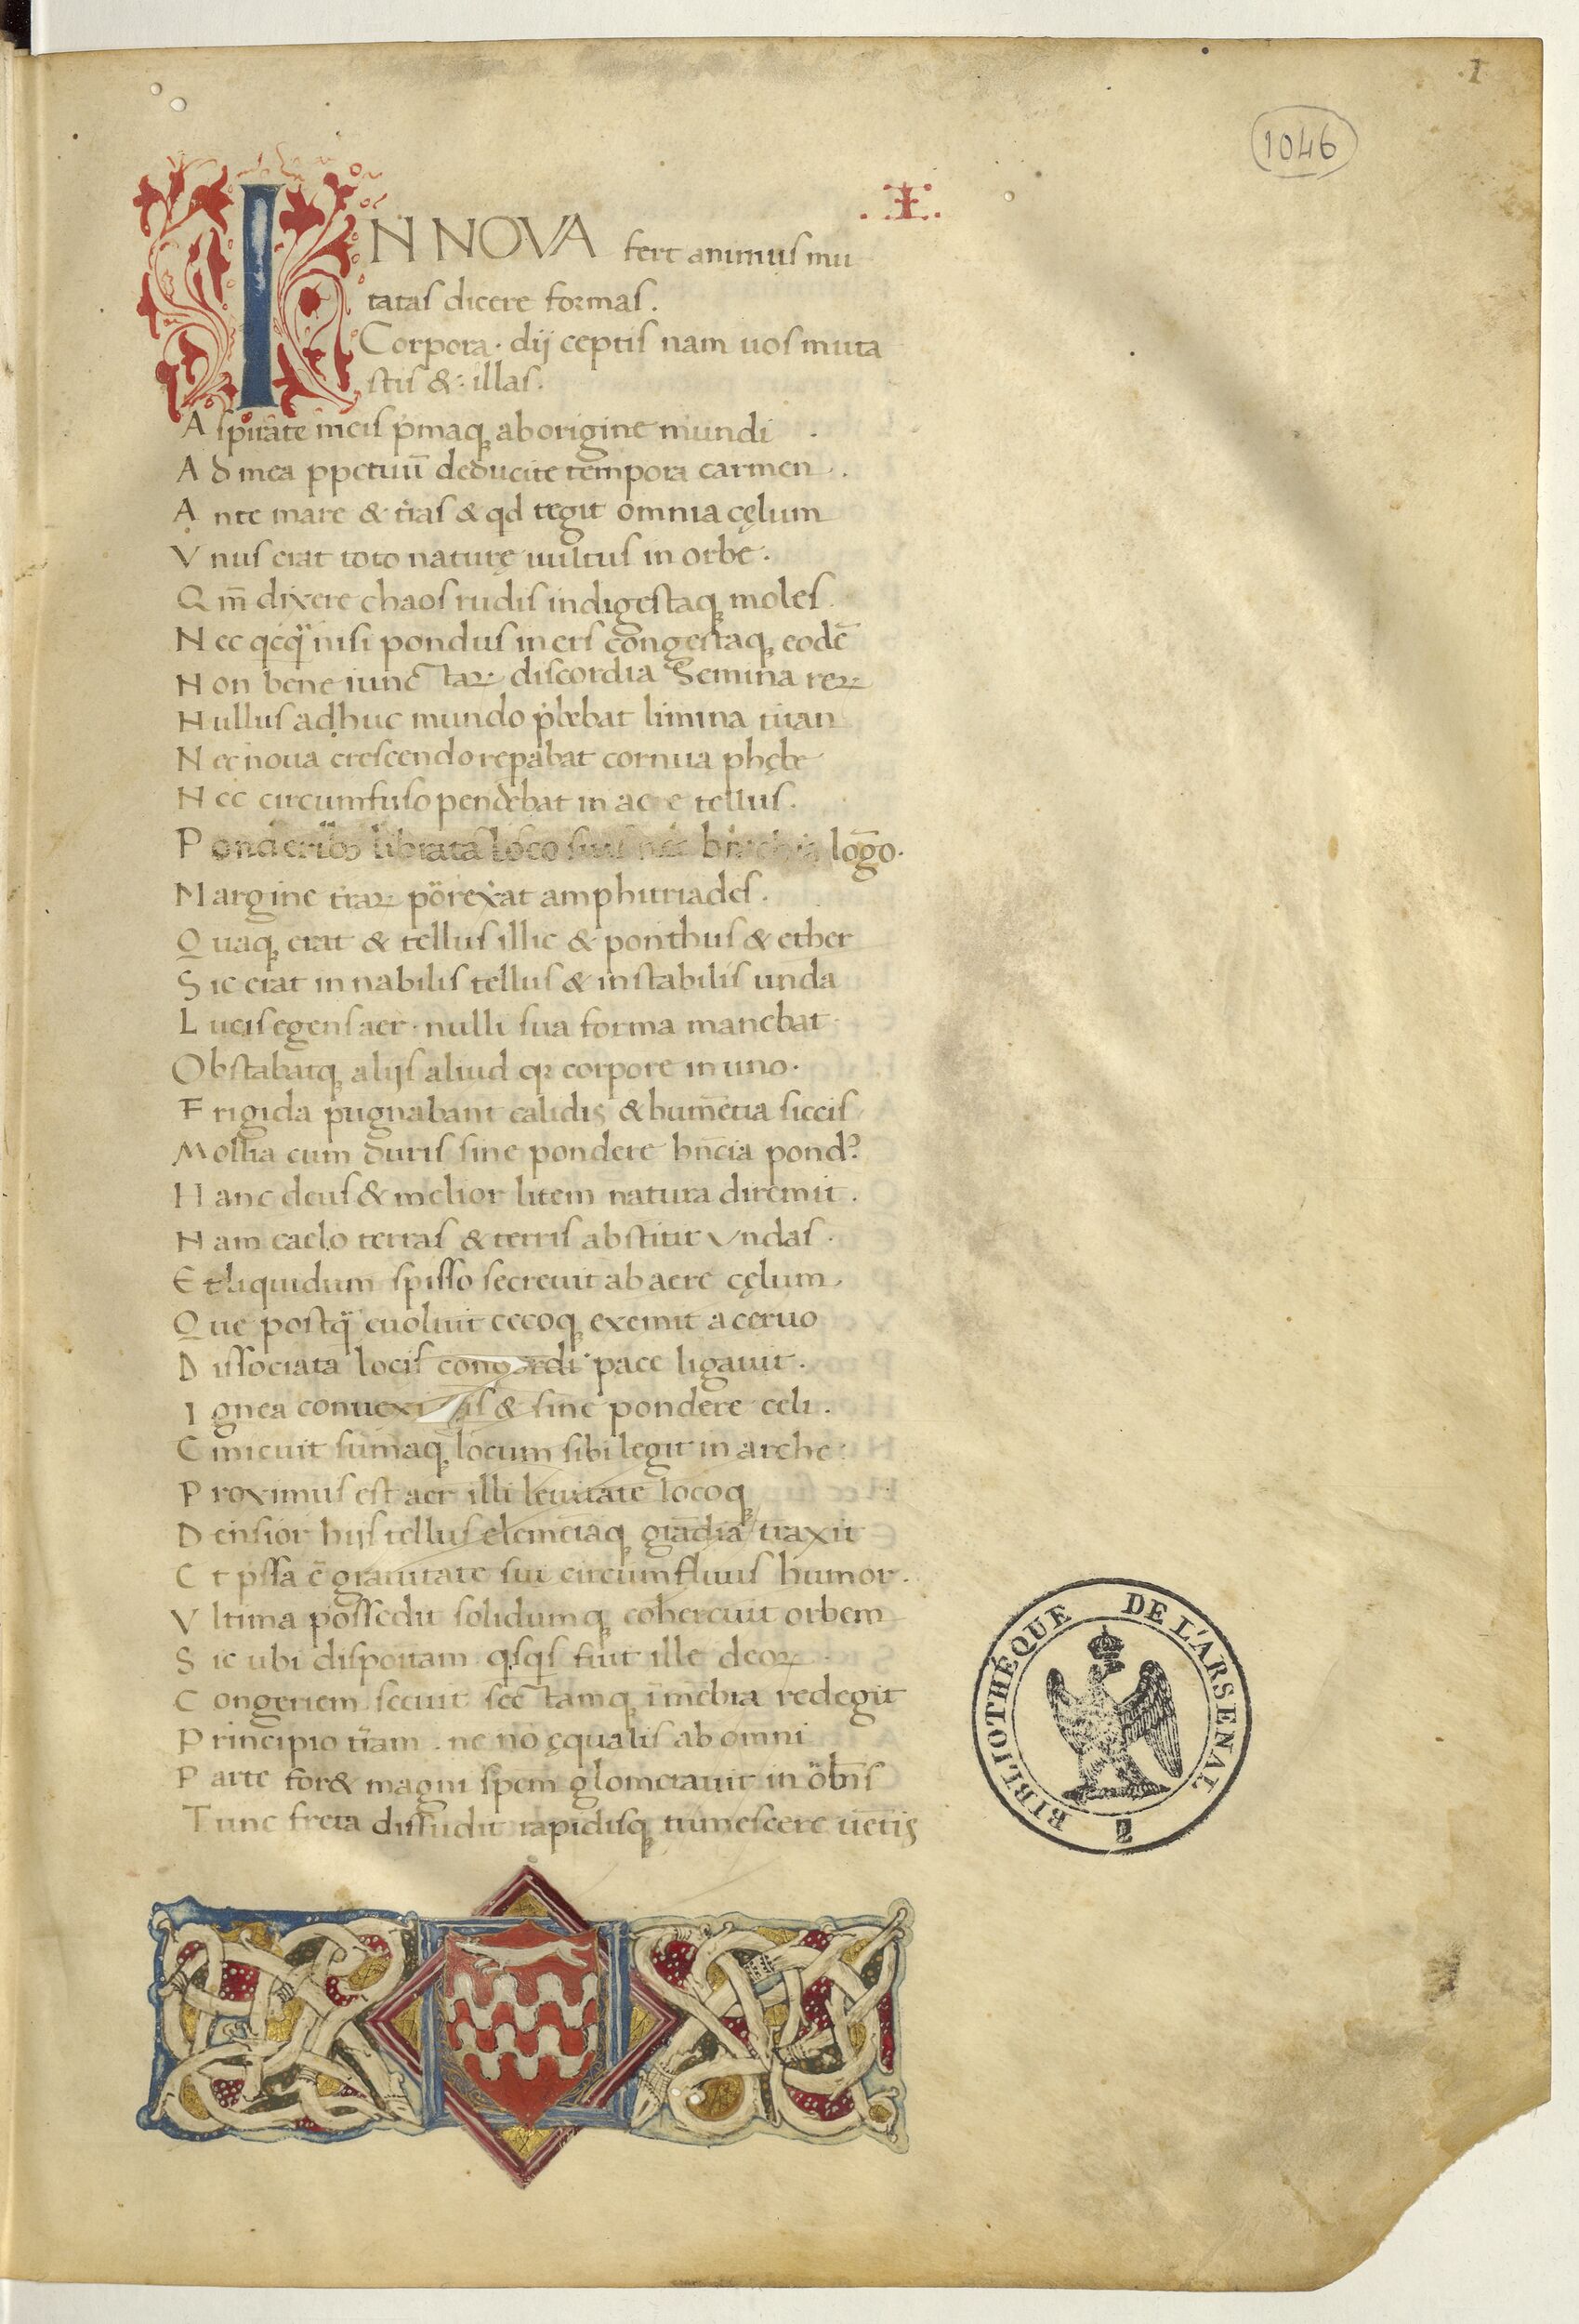 .1
1046
.I.
IN NOVA fert animus mu
tatas dicere formas.
Corpora · dij ceptis nam uos muta
stis &: illas.
Aspirate meis pͥmaqꝫ ab origine mundi
Ad mea ꝑpetuū deducite tempora carmen.
Ante mare & tr̃as & qd tegit omnia cęlum
Vnus erat toto naturę uultus in orbe.
Qm̄ dixere chaos rudis indigestaqꝫ moles.
Nec qcq̈ nisi pondus iners congestaqꝫ eodē
Non bene iunctaꝝ discordia Semina reꝝ
Nullus adhuc mundo p̱bebat limina titan
Nec noua crescendo repabat cornua phębe
Nec circumfuso pendebat in aere tellus.
Ponderibꝫ librata loco suis nec brachia lōgo.
Margine tr̃aꝝ porexͣat amphitriades.
Quaqꝫ erat & tellus illic & ponthus & ether
Sic erat innabilis tellus & instabilis unda
Lucis egens aer · nulli sua forma manebat·
Obstabatqꝫ alijs aliud qꝛ corpore in uno·
Frigida pugnabant calidis & humētia siccis
Mollia cum duris sine pondere hn̄cia pond?
Hanc deus & melior litem natura diremit.
Nam caelo terras & terris abstitit Vndas.
Et liquidum spisso secreuit ab aere cęlum
Que postq̈ euoluit cecoqꝫ exemit aceruo
Dissociata locis concordi pace ligauit.
Ignea conuexi uis & sine pondere celi.
Cmicuit sumaqꝫ locum sibi legit in arche:
Proximus est aer illi leuitate locoqꝫ
Densior hijs tellus elemētaqꝫ grādia traxit
Ct pssa ē grauitate sui circumfluus humor.
Vltima possedit solidumqꝫ cohercuit orbem
Sic ubi dispoitam qsqs fuit ille deoꝝ
Congeriem secuit sectamqꝫ ī mēbra redegit
Principio tr̃am . ne nō ęqualis ab omni
Parte for& magni spem glomerauit in orbis
Tunc freta diffudit rapidisqꝫ tumescere uētis
BIBLIOTHÉQUE DE L'ARSENAL